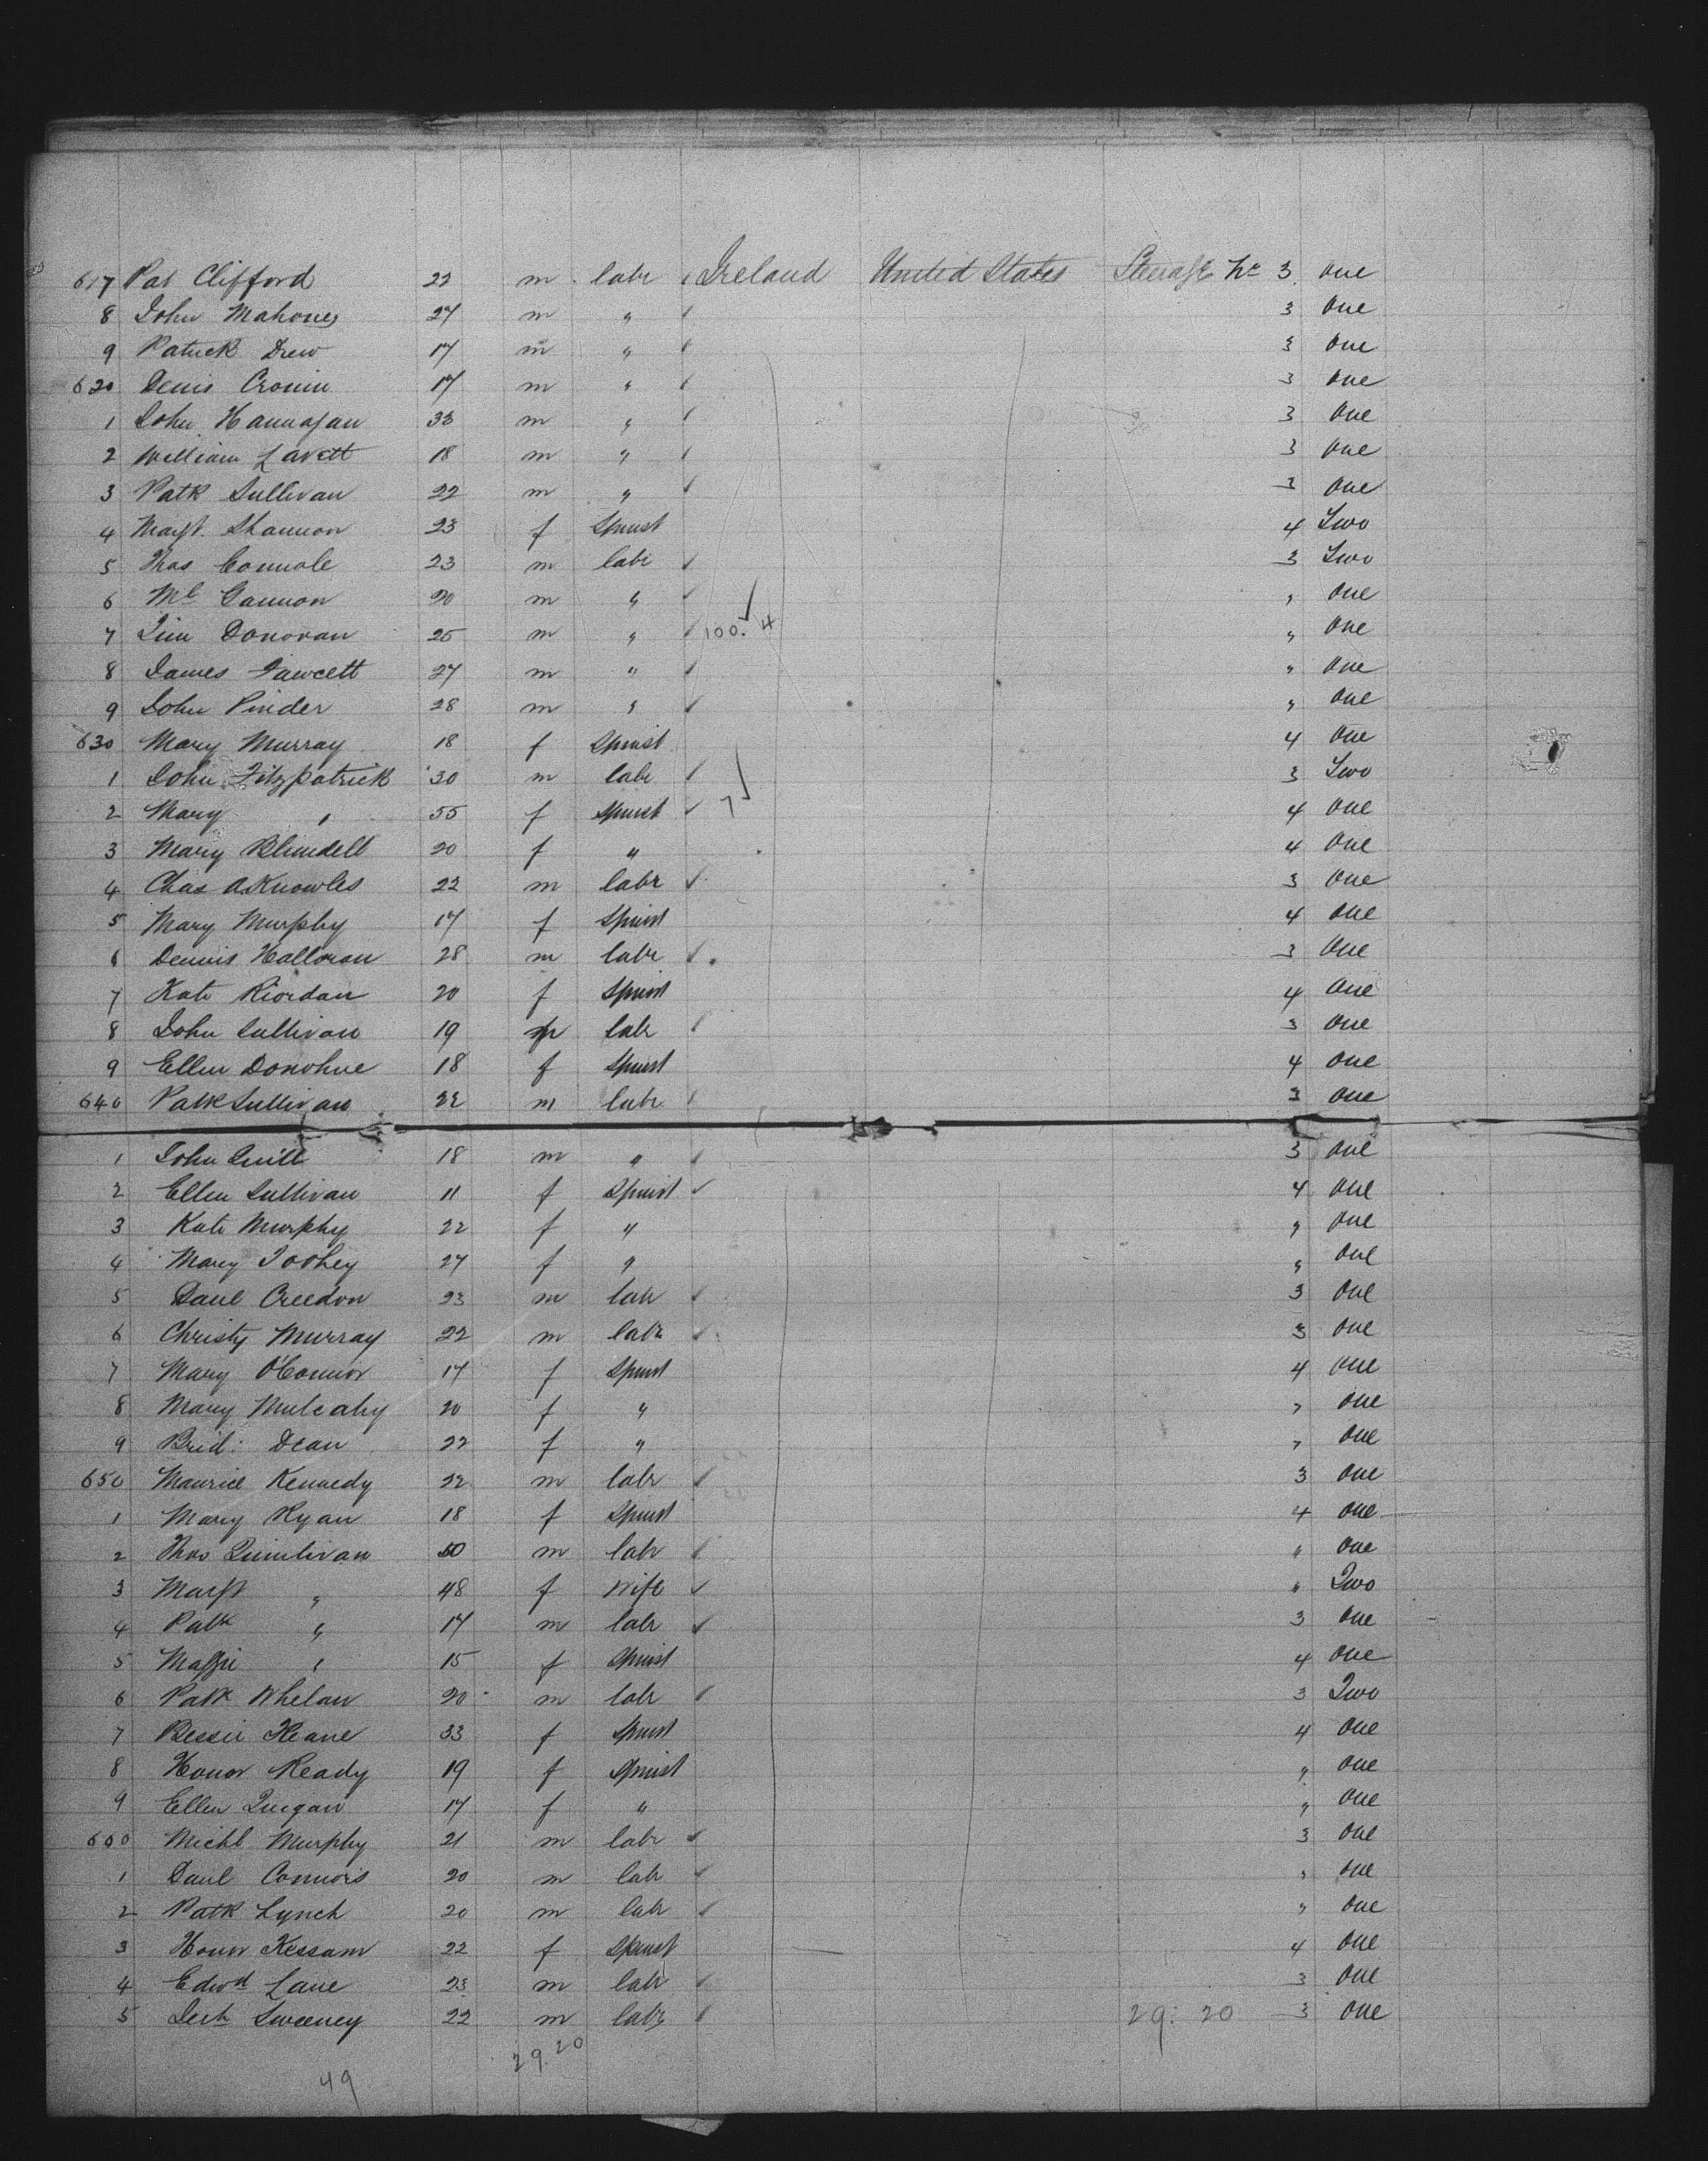 617 Pat Clifford 22 m labr Ireland United States Steerage No 3 one
8 John Mahoney 24 m " 3 one
9 Patrick Drew 17 m " 3 one
620 Denis Cronin 17 m " 3 one
1 John Hannagan 33 m " 3 one
2 William Lavett 18 m " 3 one
3 Patk Sullivan 22 m " 3 one
4 Margt. Shannon 23 f Spinst 4 Two
5 Thos Connole 23 m labr 3 Two
6 Ml Gannon 20 m " " one
7 Tim Donovan 25 m " 100. 4 " one
8 James Fawcett 27 m " " one
9 John Pinder 28 m " " one
630 Mary Murray 18 f Spinst 4 one
1 John Fitzpatrick 30 m labr 3 Two
2 Mary " 55 f Spinst 7 4 one
3 Mary Blundell 20 f " 4 one
4 Chas A Knowles 22 m labr 3 one
5 Mary Murphy 17 f Spinst 4 one
6 Dennis Halloran 28 m labr 3 one
7 Kate Riordan 20 f Spinst 4 one
8 John Sullivan 19 m labr 3 one
9 Ellen Donohue 18 f Spinst 4 one
640 Patk Sullivan 22 m labr 3 one
1 John Quill 18 m " 3 one
2 Ellen Sullivan 11 f Spinst 4 one
3 Kate Murphy 22 f " " one
4 Mary Toohey 27 f " " one
5 Danl Creedon 23 m labr 3 one
6 Christy Murray 22 m labr 3 one
7 Mary O'Connor 17 f Spinst 4 one
8 Mary Mulcahy 20 f " " one
9 Brid: Dean 22 f " " one
650 Maurice Kennedy 22 m labr 3 one
1 Mary Ryan 18 f Spinst 4 one
2 Thos Quinlivan 50 m labr " one
3 Margt " 48 f Wife " Two
4 Patk " 17 m labr 3 one
5 Maggie " 15 f Spinst 4 one
6 Patk Whelan 20 m labr 3 Two
7 Bessie Keane 33 f Spinst 4 one
8 Honor Ready 19 f Spinst " one
9 Ellen 17 f " " one
660 Michl Murphy 21 m labr 3 one
1 Danl Connors 20 m labr " one
2 Patk Lynch 20 m labr " one
3 Honor 22 f Spinst 4 one
4 Edwd Lane 23 m labr 3 one
5 Sweeney 22 m labr 29: 20 3 one
29.20
49